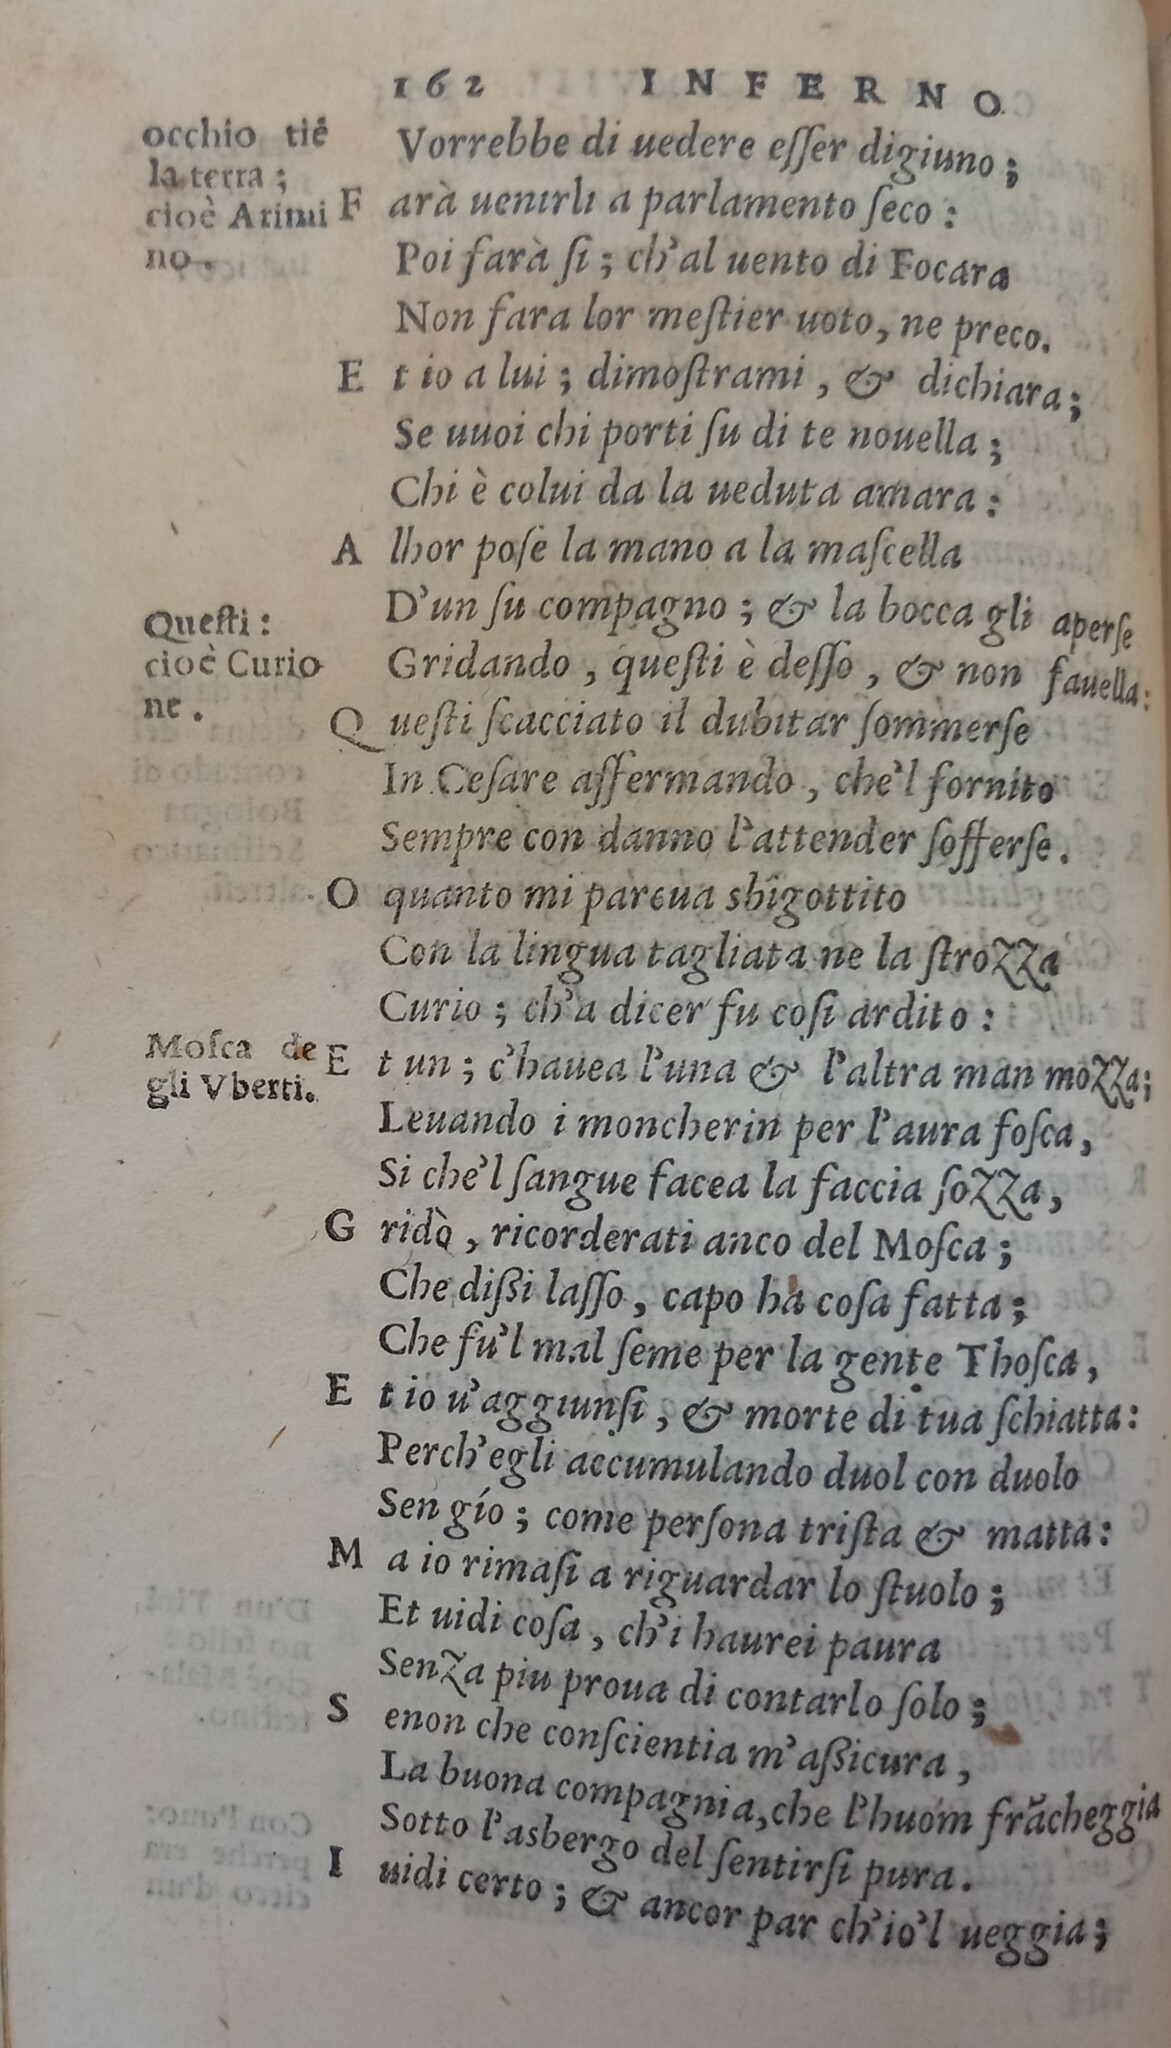 162 INFERNO
occhio tiē
la terra;
cioè Arimi
no.
Vorrebbe di uedere eſſer digiuno;
F arà uenirli a parlamento ſeco:
Poi farà ſi; ch'al uento di Focara
Non fara lor meſtier uoto, ne preco.
E t io a lui; dimoſtrami, & dichiara;
Se uuoi chi porti ſu di te nouella;
Chi è colui da la ueduta amara:
A lhor poſe la mano a la maſcella
D'un ſu compagno; & la bocca gli aperſe
Queſti:
cioè Curio
ne.
Gridando, queſti è deſſo, & non fauella:
Q ueſti ſcacciato il dubitar ſommerſe
In Ceſare affermando, che'l fornito
Sempre con danno l'attender ſofferſe.
O quanto mi pareua sbigottito
Con la lingua tagliata ne la ſtrozza
Curio; ch'a dicer fu coſi ardito:
Moſca de
gli Vberti.
E t un; c'hauea l'una & l'altra man mozza;
Leuando i moncherin per l'aura foſca,
Si che'l ſangue facea la faccia ſozza,
G ridò, ricorderati anco del Moſca;
Che dißi laſſo, capo ha coſa fatta;
Che fu'l mal ſeme per la gente Thoſca,
E t io u'aggiunſi, & morte di tua ſchiatta:
Perch'egli accumulando duol con duolo
Sen gío; come perſona triſta & matta:
M a io rimaſi a riguardar lo ſtuolo;
Et uidi coſa, ch'i haurei paura
Senza piu proua di contarlo ſolo;
S enon che conſcientia m'aßicura,
La buona compagnia, che l'huom frācheggia
Sotto l'asbergo del ſentirſi pura.
I uidi certo; & ancor par ch'io'l ueggia;